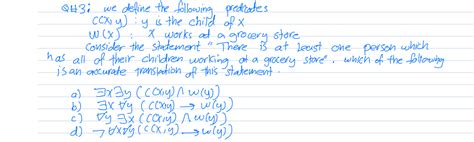 Q#3: we define the following predicates
C(x,y) : y is the child of x
W(x) : x works at a grocery store
Consider the statement "There is at least one person which
has all of their children working at a grocery store". which of the following
is an accurate translation of this statement.
a) ∃x∃y (C(x,y) ∧ w(y))
b) ∃x ∀y (C(x,y) → w(y))
c) ∀y ∃x (C(x,y) ∧ w(y))
d) ¬∀x∀y (C(x,y) → w(y))